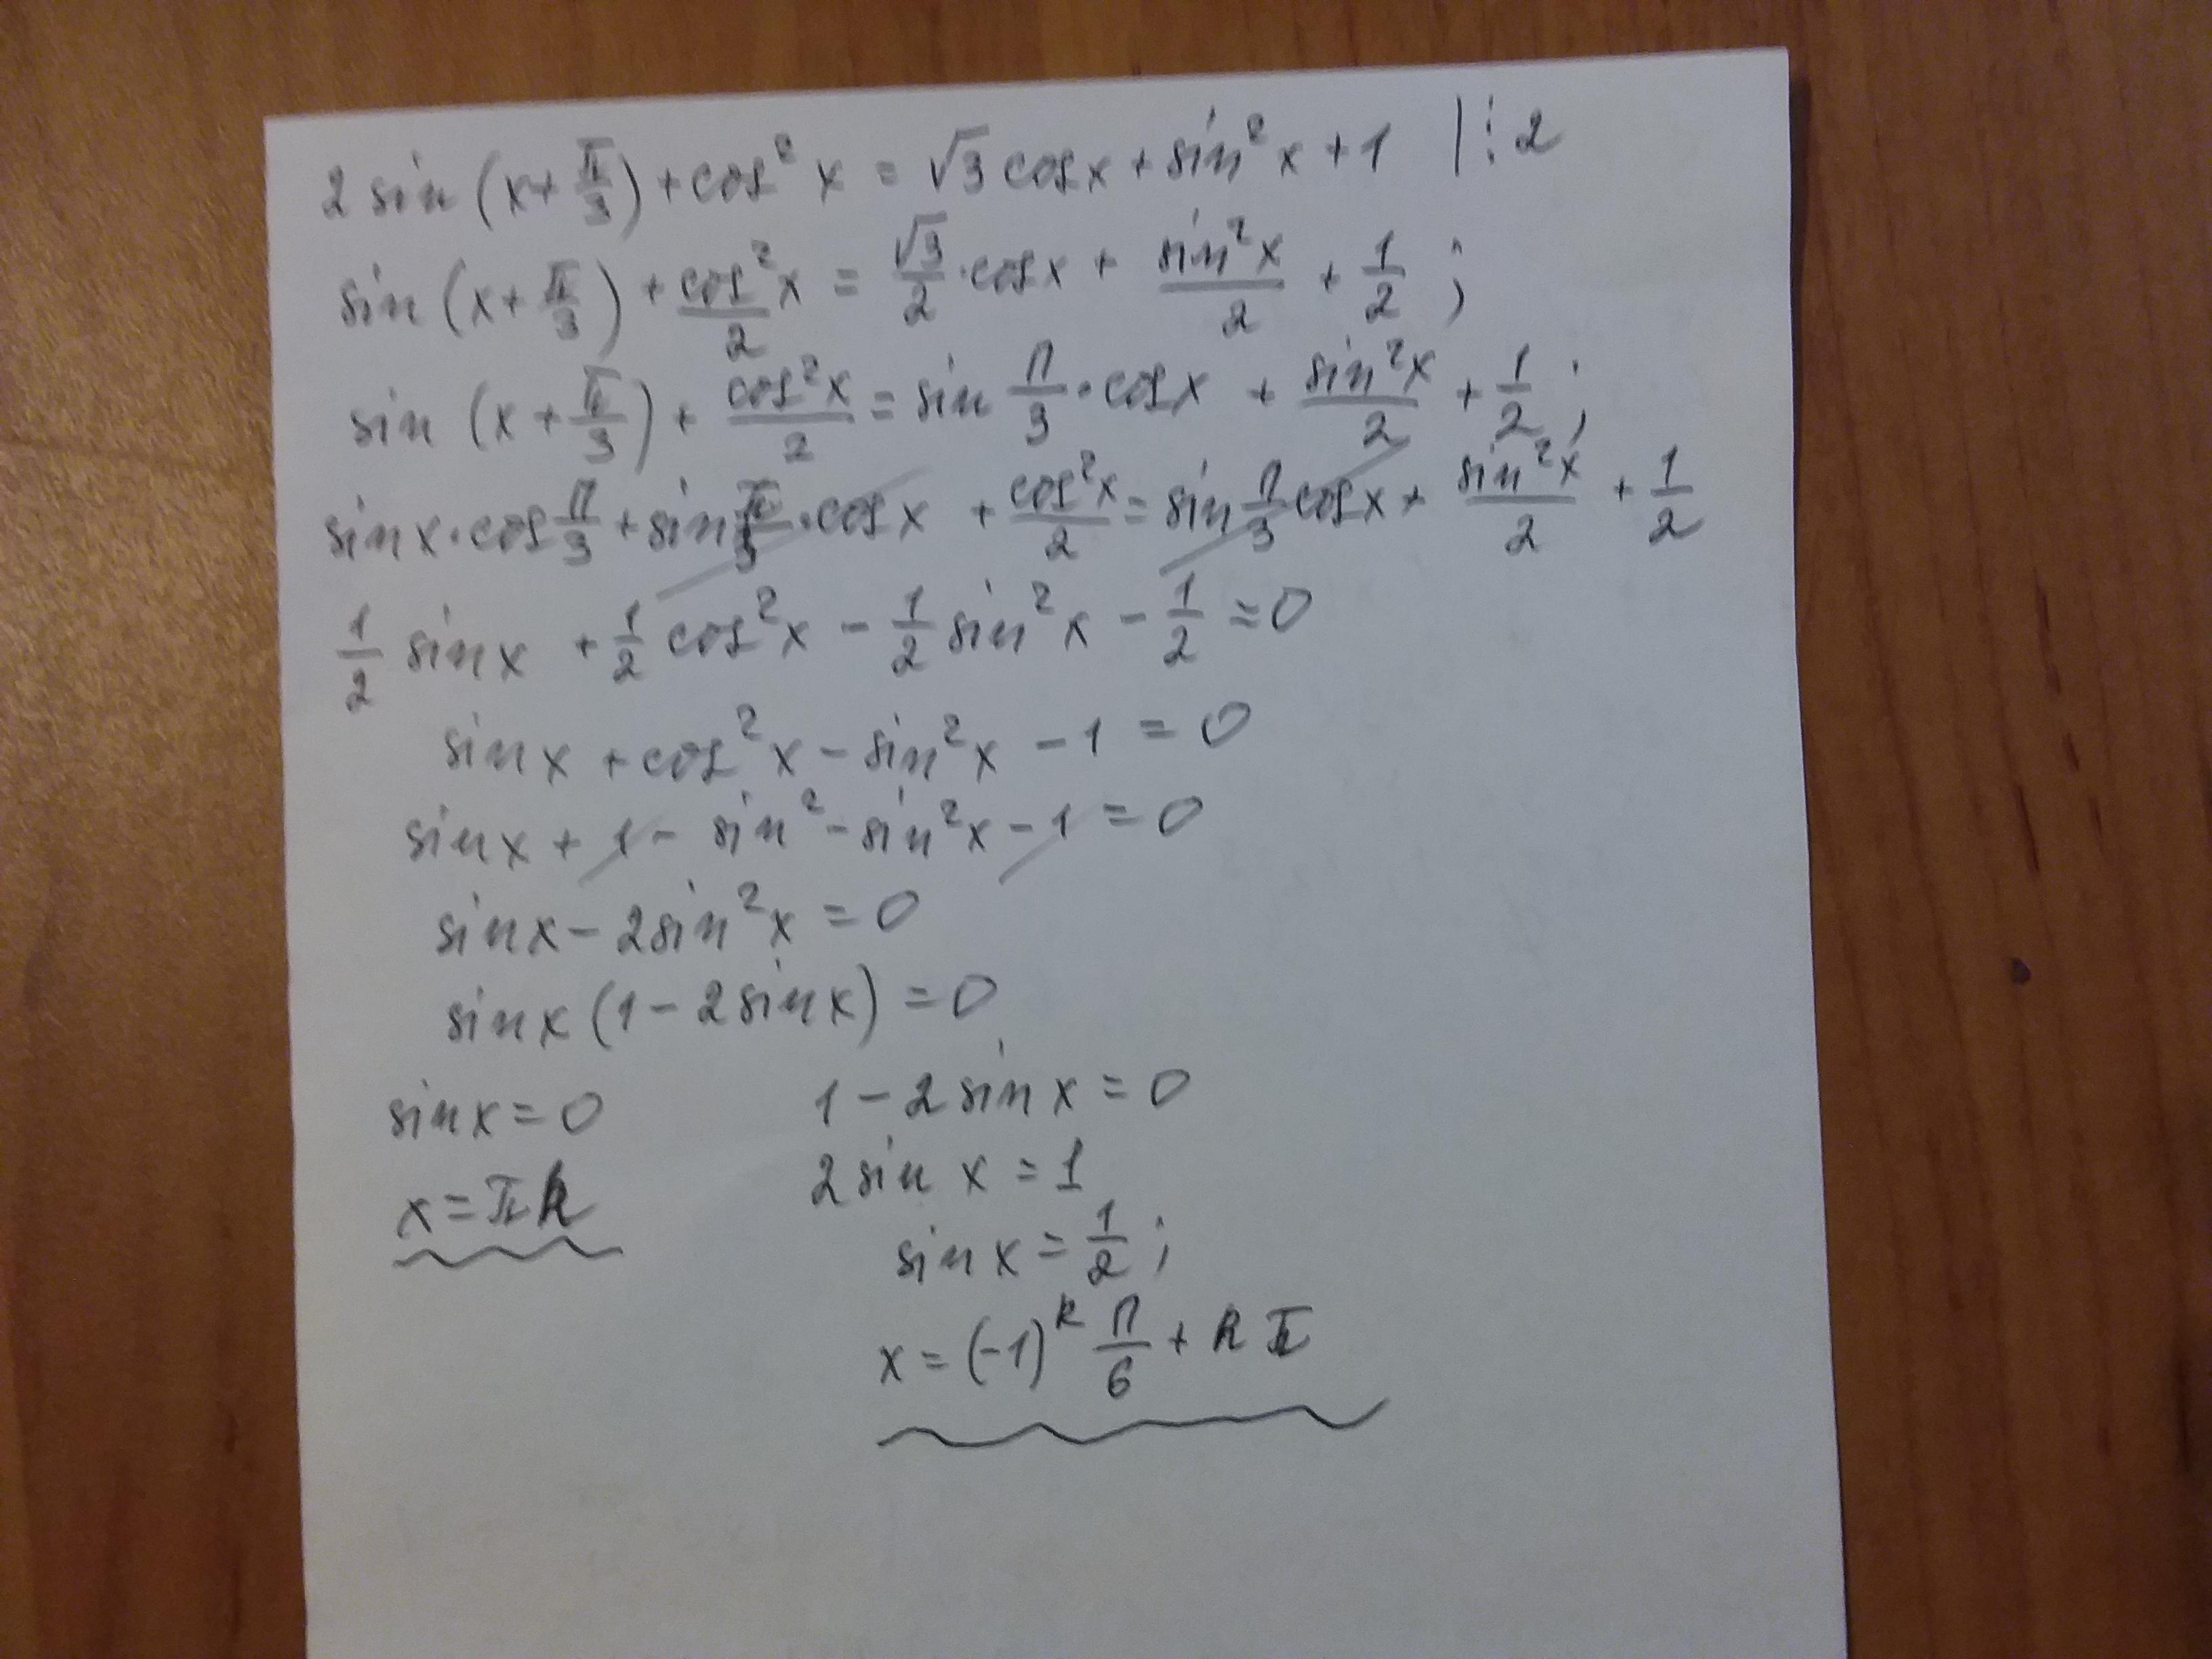 2 sin (x+π/3) + cos² x = √3 cosx + sin² x + 1 |:2
sin (x+π/3) + cos²x/2 = √3/2 · cosx + sin²x/2 + 1/2 ;
sin (x + π/3) + cos²x/2 = sin π/3 · cosx + sin²x/2 + 1/2 ;
sinx · cos π/3 + sin π/3 · cosx + cos²x/2 = sin π/3 cosx + sin²x/2 + 1/2
1/2 sinx + 1/2 cos²x - 1/2 sin²x - 1/2 = 0
sinx + cos²x - sin²x - 1 = 0
sinx + 1 - sin² - sin²x - 1 = 0
sinx - 2sin²x = 0
sinx (1 - 2sinx) = 0
sinx = 0 1 - 2 sinx = 0
x = πk 2 sin x = 1
sinx = 1/2 ;
x = (-1)^k π/6 + kπ